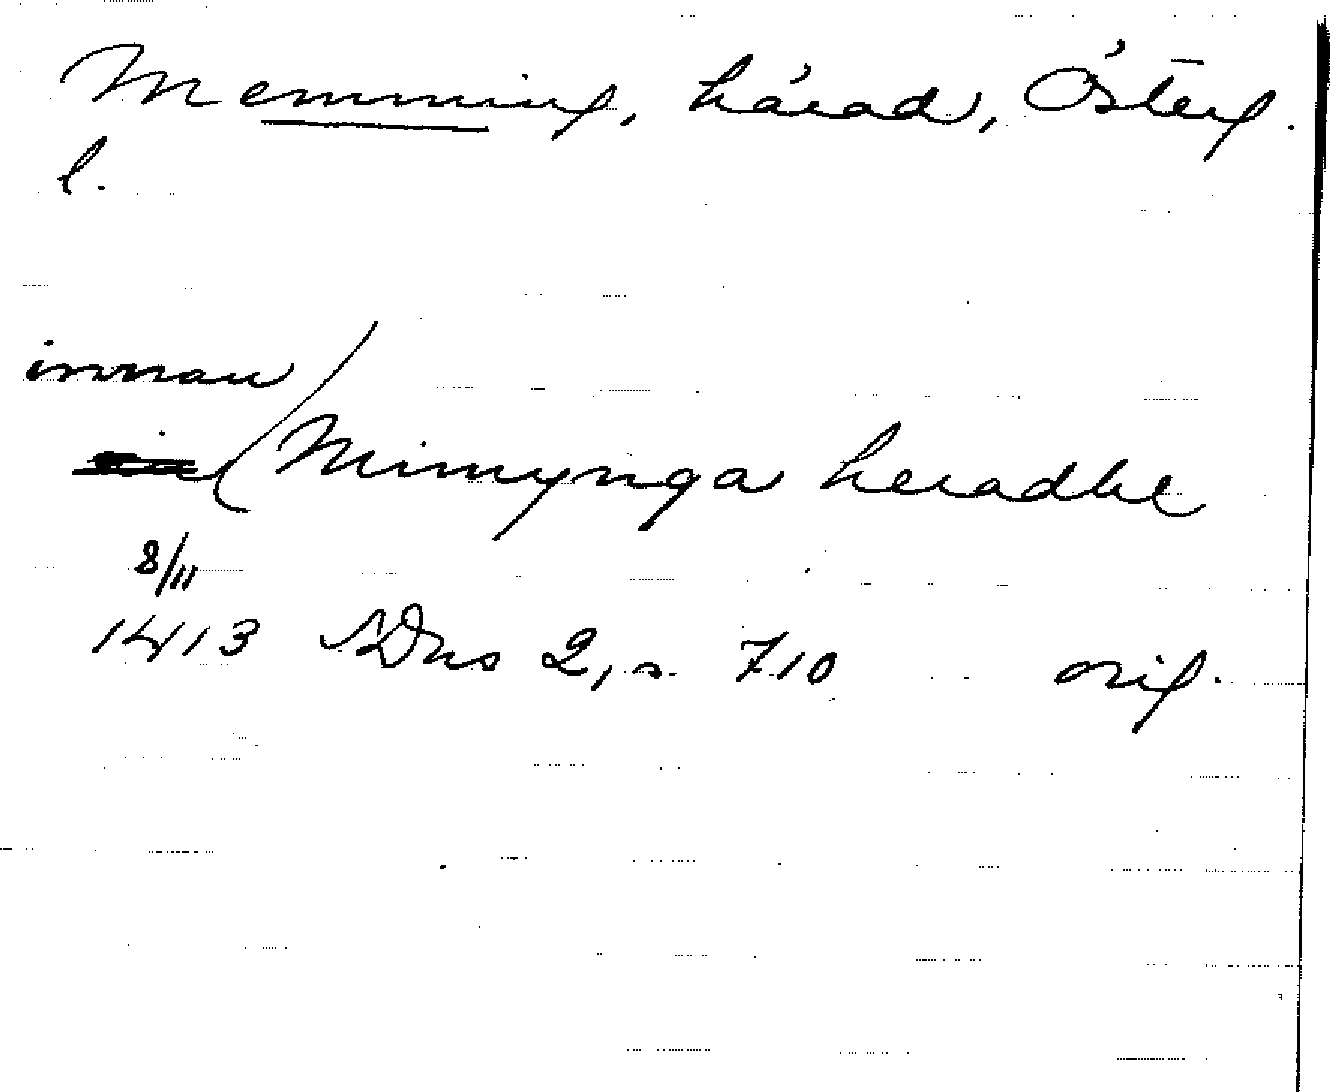 Memming, härad, Österg.
l.
innan
Mimynga heradhe
8/11
1413 SDns 2, s. 710 orig.